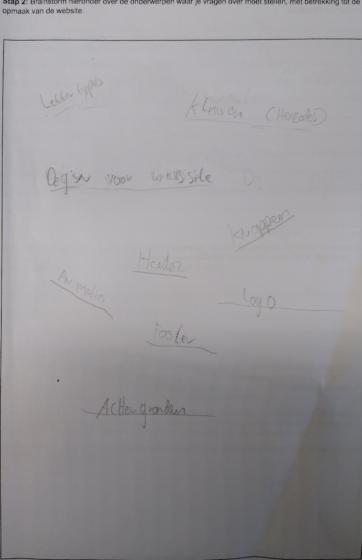 Stap 2: Brainstorm hieronder over de onderwerpen waar je vragen over moet stellen, met betrekking tot de
opmaak van de website.
Lettertypes
Kleuren (Hexcodes)
Design voor website
Knoppen
Header
Animatie
logo
footer
Achtergronden